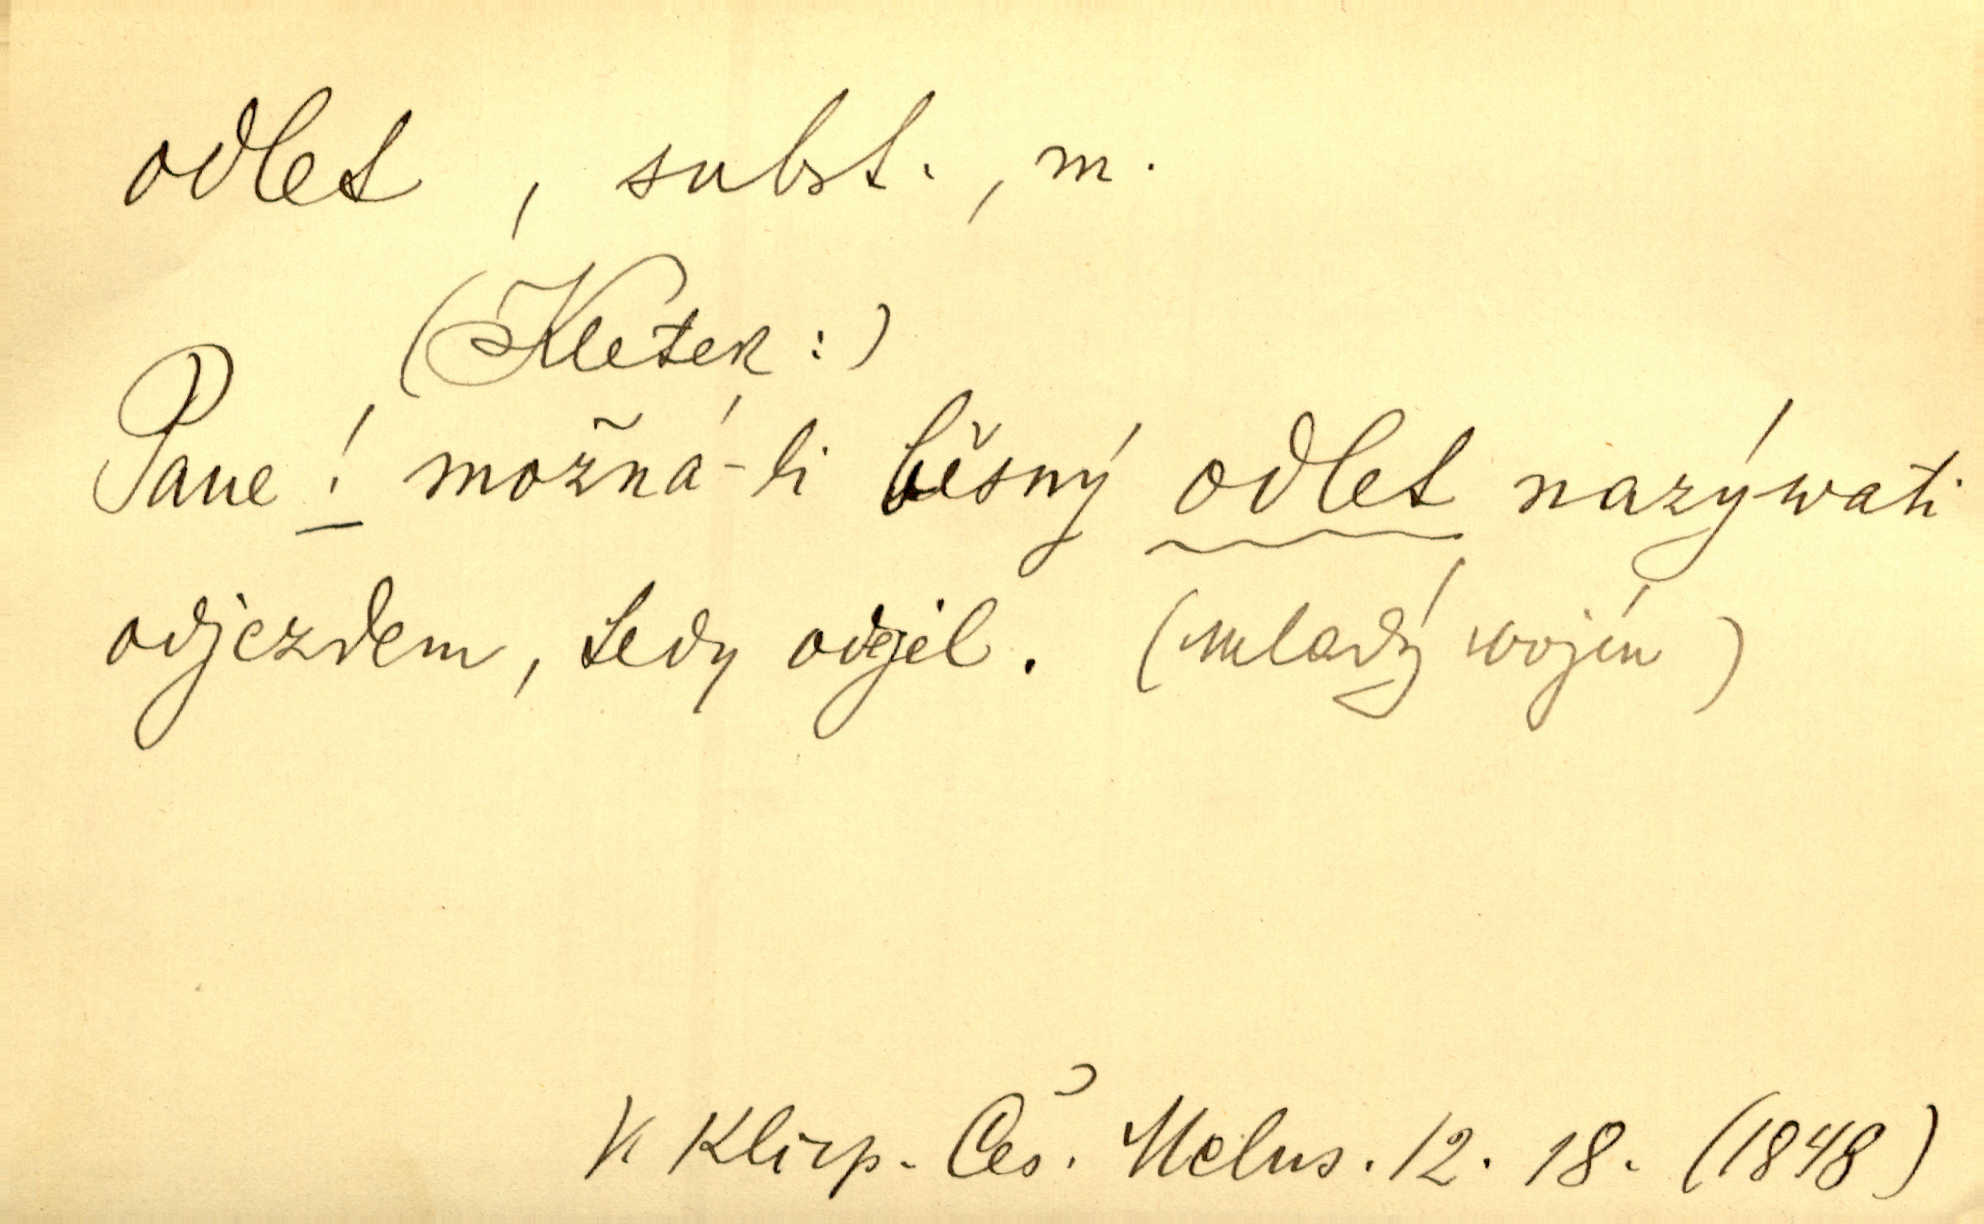 odlet , subst. , m.
(Kletek :)
Pane ! možná-li běsný odlet nazýwati
odjezdem, tedy odjel. (mladý wojín)
V. Klicp. Čes. Melus. 12. 18. (1848)